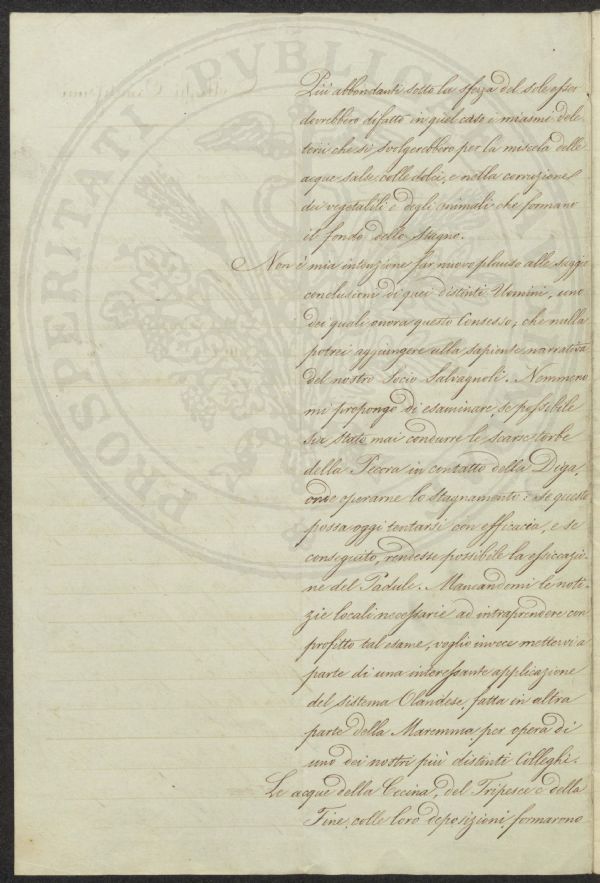 Più abbondanti sotto la sferza del sole esser
dovrebbero difatto in quel caso i miasmi dele
terii che si svolgerebbero per la miscela delle
acque salse colle dolci, e nella corruzione
dei vegetabili e degli animali che formano
il fondo dello stagno.
Non è mia intenzione far nuovo plauso alle sagge
conclusioni di quei distinti Uomini, uno
dei quali onora questo Consesso; che nulla
potrei aggiungere alla sapiente narrativa
del nostro Socio Salvagnoli. Nemmeno
mi propongo di esaminare, se possibile
sia stato mai condurre le scarse torbe
della Pecora in contatto della Diga,
onde operarne lo stagnamento: se questo
possa oggi tentarsi con efficacia, e se
conseguito, rendesse possibile la essiccazio-
ne del Padule. Mancandomi le noti-
zie locali necessarie ad intraprendere con
profitto tal esame, voglio invece mettervi a
parte di una interessante applicazione
del sistema Olandese, fatta in altra
parte della Maremma per opera di
uno dei nostri più distinti Colleghi.
Le acque della Cecina, del Tripesce e della
Fine, colle loro deposizioni formarono
PROSPERITATI PVBLICAE